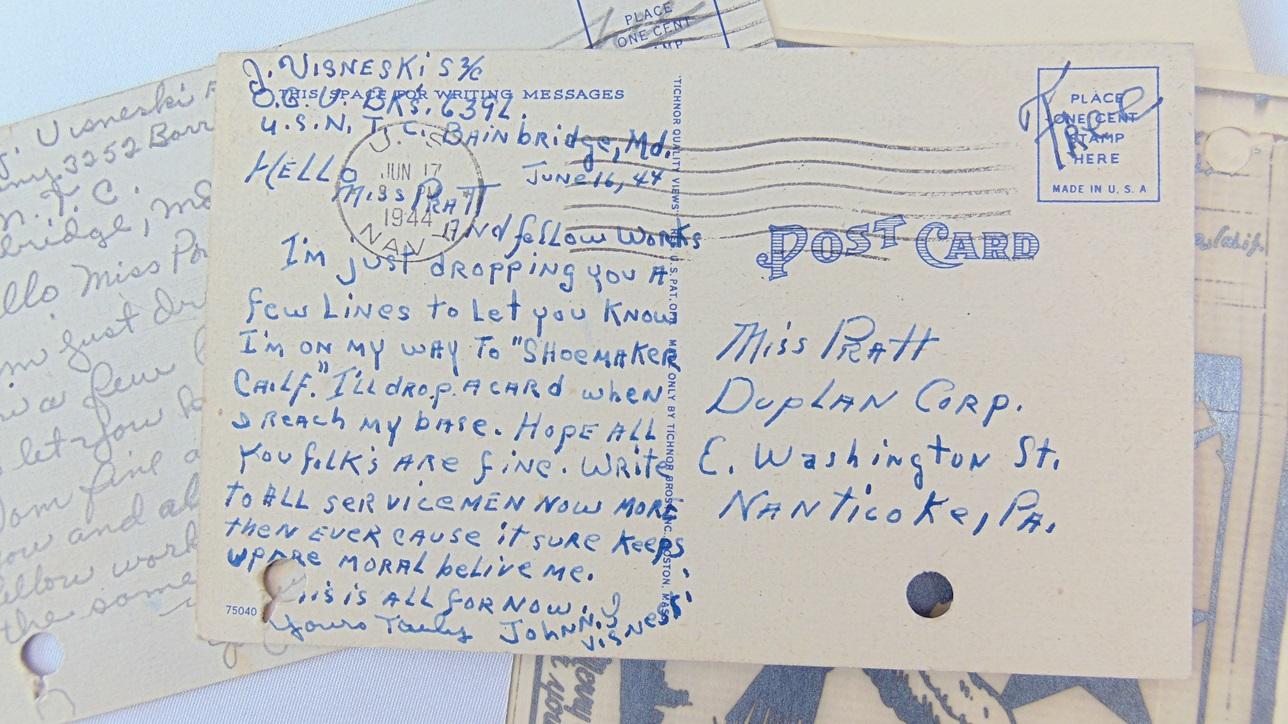 PLACE
ONE CENT
J. Visneski
3252 Barr
N. T. C.
bridge, Md
llo Miss Pr
m just dr
a few
let you k
am fine a
you and al
fellow work
the same
J. VISNESKI S 2/c
THIS SPACE FOR WRITING MESSAGES
O.G.U. BKS. 639L.
U.S.N.T.C. BAinbridge, Md.
JUN 17
1944
HELLO
JUNE 16, 44
Miss PRATT
ANd fellow WoRKs
I'm just dropping you A
few LiNes to Let you KNow
I'm oN my wAy To "SHoemAKeR
CAiLf." I'LL dRop A CARd wHeN
I ReAch my bAse. HoPe ALL
You folk's ARe fiNe. WRite
to ALL seRviceMeN Now MoRe
theN eveR cAuse it suRe Keeps
up ARe moRAL beLive me.
This is ALL foR Now.
Yours Truly JohNN. J.
VisNesKi
75040
TICHNOR QUALITY VIEWS. REG. U.S. PAT. OFF. MADE ONLY BY TICHNOR BROS. INC. BOSTON, MASS.
PLACE
ONE CENT
STAMP
HERE
MADE IN U. S. A
Free
POST CARD
Miss PRAtt
DupLAN CoRp.
E. WAshingtoN St.
NANticoKe, PA.
Calif.